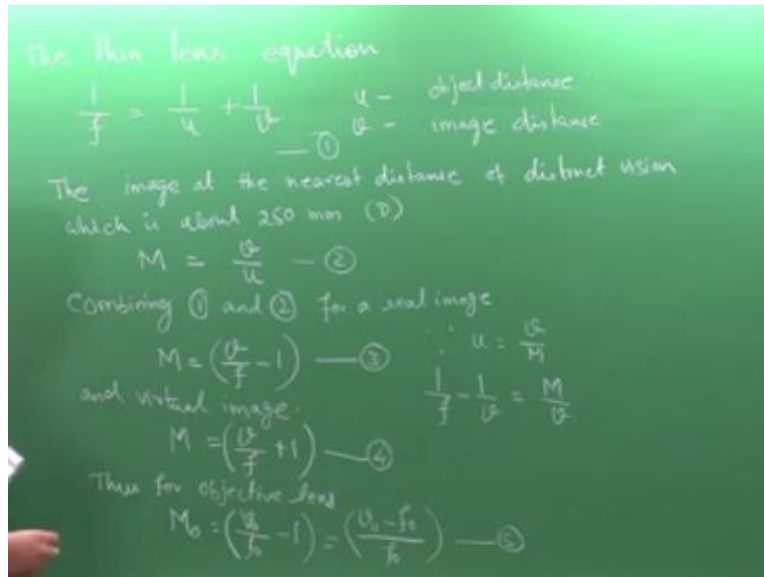 The thin lens equation
1/f = 1/u + 1/v — ①
u - object distance
v - image distance
The image at the nearest distance of distinct vision
which is about 250 mm (D)
M = v/u — ②
Combining ① and ② for a real image
M = (v/f - 1) — ③
∵ u = v/M
1/f - 1/v = M/v
and virtual image.
M = (v/f + 1) — ④
Thus for objective lens
M₀ = (v₀/f₀ - 1) = (v₀ - f₀/f₀) — ⑤